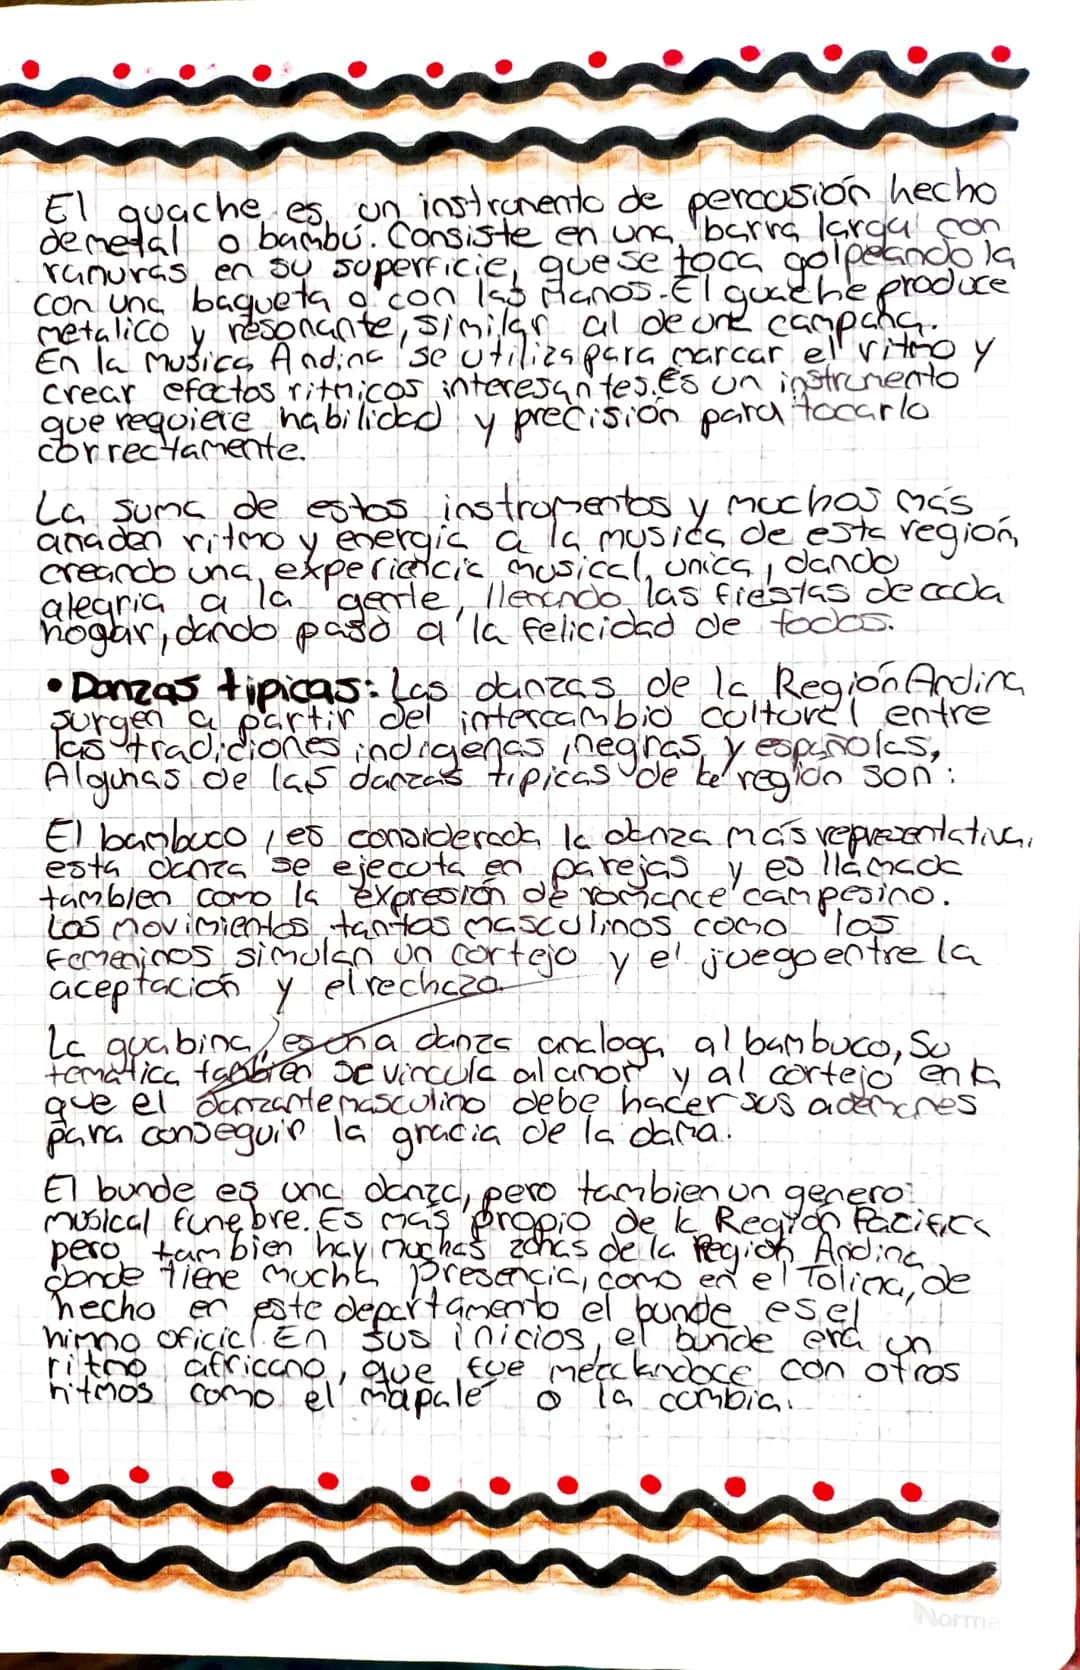 El guache es un instrumento de percusión hecho
de metal o bambú. Consiste en una barra larga con
ranuras en su superficie, que se toca golpeando la
con una baqueta o con las manos. El guache produce
metalico y resonante, similar al de una campana.
En la Musica Andina se utiliza para marcar el ritmo y
crear efectos ritmicos interesantes. Es un instrumento
que requiere habilidad y precisión para tocarlo
correctamente.
La suma de estos instrumentos y muchos más
añaden ritmo y energia a la musica de esta región,
creando una experiencia musical unica, dando
alegria a la gente, llenando las fiestas de cada
hogar, dando paso a la felicidad de todos.
• Danzas tipicas: Las danzas de la Región Andina
surgen a partir del intercambio cultural entre
las tradiciones indigenas, negras y españolas,
Algunas de las danzas tipicas de la región son:
El bambuco, es considerada la danza más representativa,
esta danza se ejecuta en parejas y es llamada
tambien como la expresión de romance campesino.
Los movimientos tantos masculinos como los
femeninos simulan un cortejo y el juego entre la
aceptación y el rechazo
La guabina, es una danza analoga al bambuco, Su
temática tambien se vincula al amor y al cortejo en la
que el danzante masculino debe hacer sus ademanes
para conseguir la gracia de la dama.
El bunde es una danza, pero tambien un genero
musical funebre. Es más propio de la Región Pacifica
pero tambien hay muchas zonas de la Región Andina
donde tiene mucha presencia, como en el Tolima, de
hecho en este departamento el bunde es el
himno oficial. En sus inicios, el bunde era un
ritmo africano, que fue mezclandoce con otros
ritmos como el mapalé o la cumbia.
Norma